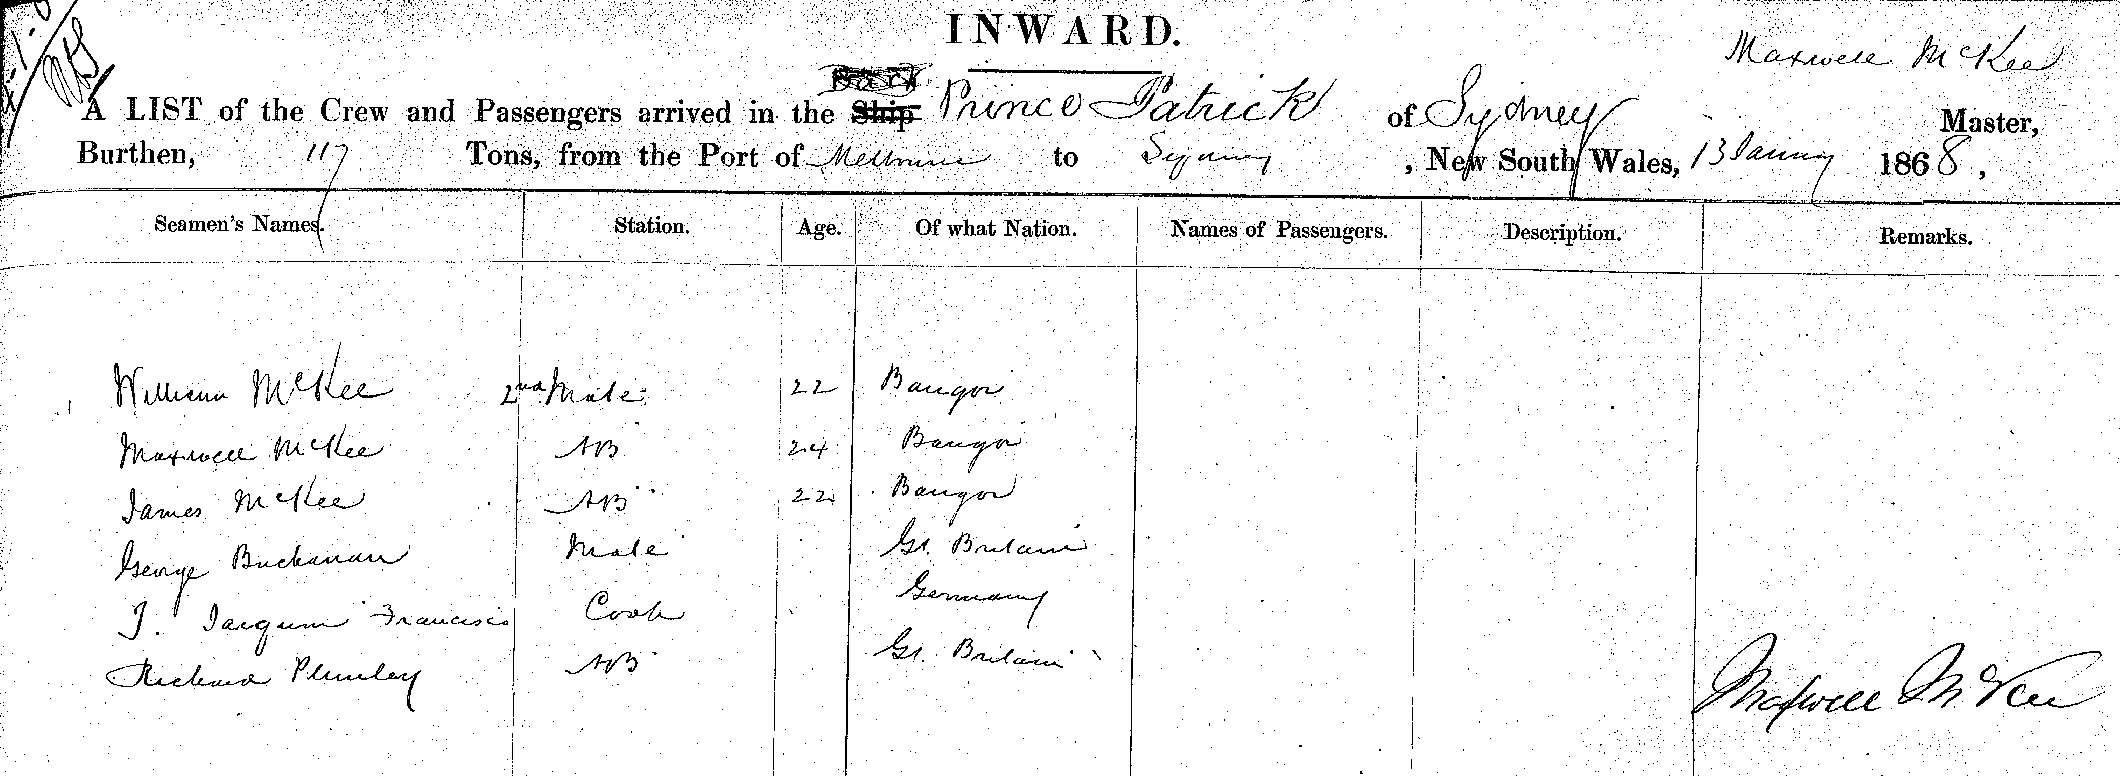 INWARD.
Maxwell McKee
A LIST of the Crew and Passengers arrived in the Ship Prince Patrick of Sydney Master,
Burthen, 117 Tons, from the Port of Melbourne to Sydney, New South Wales, 13 January 1868,
Seamen's Names. Station. Age. Of what Nation. Names of Passengers. Description. Remarks.
William McKee 2nd Mate 22 Bangor
Maxwell McKee AB 24 Bangor
James McKee AB 22 Bangor
George Buchanan Mate Gt. Britain
J. Jaequim Francisco Cook Germany
Richard Plumley AB Gt. Britain
Maxwell McKee